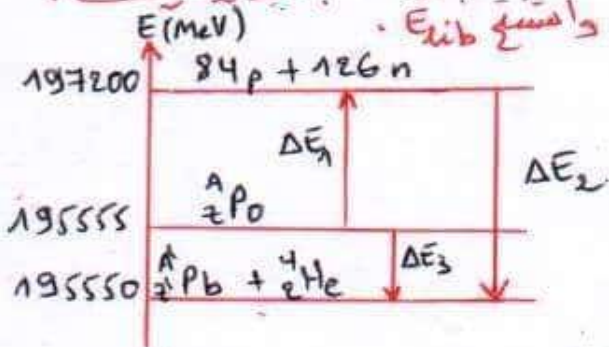 E(MeV)
واستنتج Elib .
197200 84p + 126n
ΔE₁
ΔE₂
195555 ᴬ_Z Po
ΔE₃
195550 ᴬ'_Z' Pb + ⁴₂He